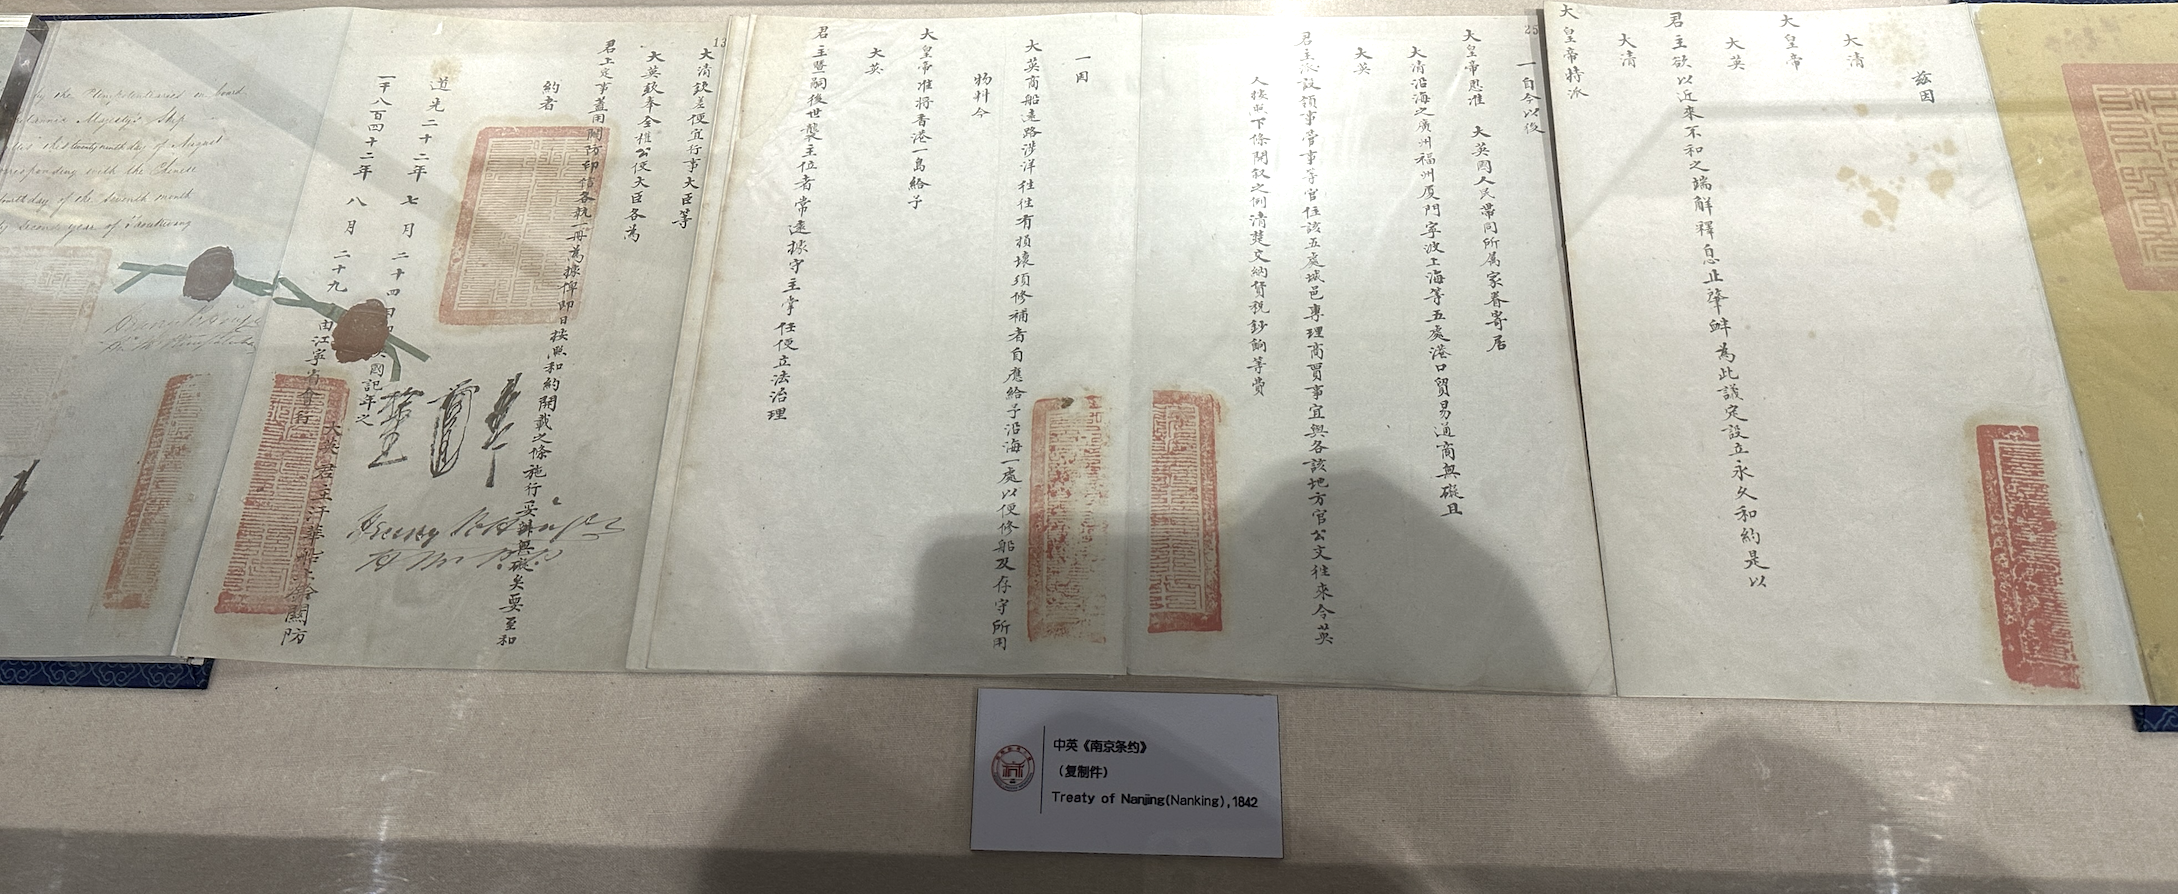 兹因
大清
大皇帝
大英
君主欲以近來不和之端解釋息止肇衅為此議定設立永久和約是以
大清
大皇帝特派
25
一自今以後
大皇帝恩准 大英國人民帶同所屬家眷寄居
大清沿海之廣州福州厦門寧波上海等五處港口貿易通商無礙且
大英
君主派設領事管事等官住該五處城邑專理商賈事宜與各該地方官公文往來令英
人按照下條開叙之例清楚交納貨稅鈔餉等費
一因
大英商船遠路涉洋往往有損壞須修補者自應給予沿海一處以便修船及存守所用
物料今
大皇帝准將香港一島給予
大英
君主暨嗣後世襲主位者常遠據守主掌任便立法治理
13
大清欽差便宜行事大臣等
大英欽奉全權公使大臣各為
君上定事蓋用關防印信各執一冊為據俾即日按照和約開載之條施行妥辦無礙矣要至和
約者
道光二十二年七月二十四日即英國記年之
一千八百四十二年八月二十九日由江寧省會行
大英君主汗華船上鈐關防
Henry Pottinger
by the Plenipotentiaries on board
Britannic Majesty's Ship
this twenty ninth day of August
corresponding with the Chinese
fourth day of the seventh month
Second year of Taoukwang
中英《南京条约》
（复制件）
Treaty of Nanjing(Nanking),1842